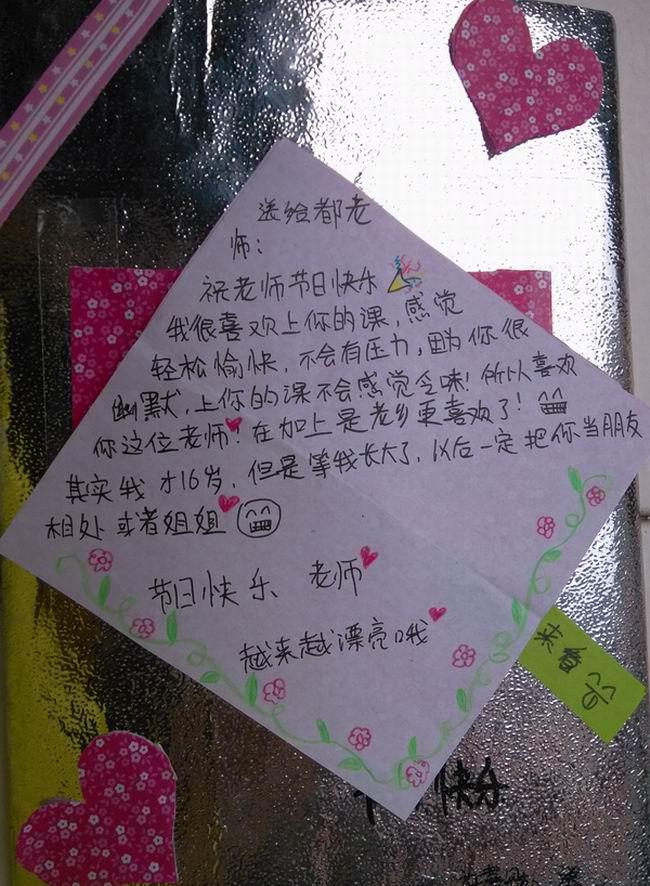 送给都老
师:
祝老师节日快乐
我很喜欢上你的课,感觉
轻松愉快,不会有压力,因为你很
幽默,上你的课不会感觉乏味!所以喜欢
你这位老师!在加上是老乡更喜欢了!
其实我才16岁,但是等我长大了,以后一定把你当朋友
相处或者姐姐
节日快乐 老师
越来越漂亮哦
来看
快乐